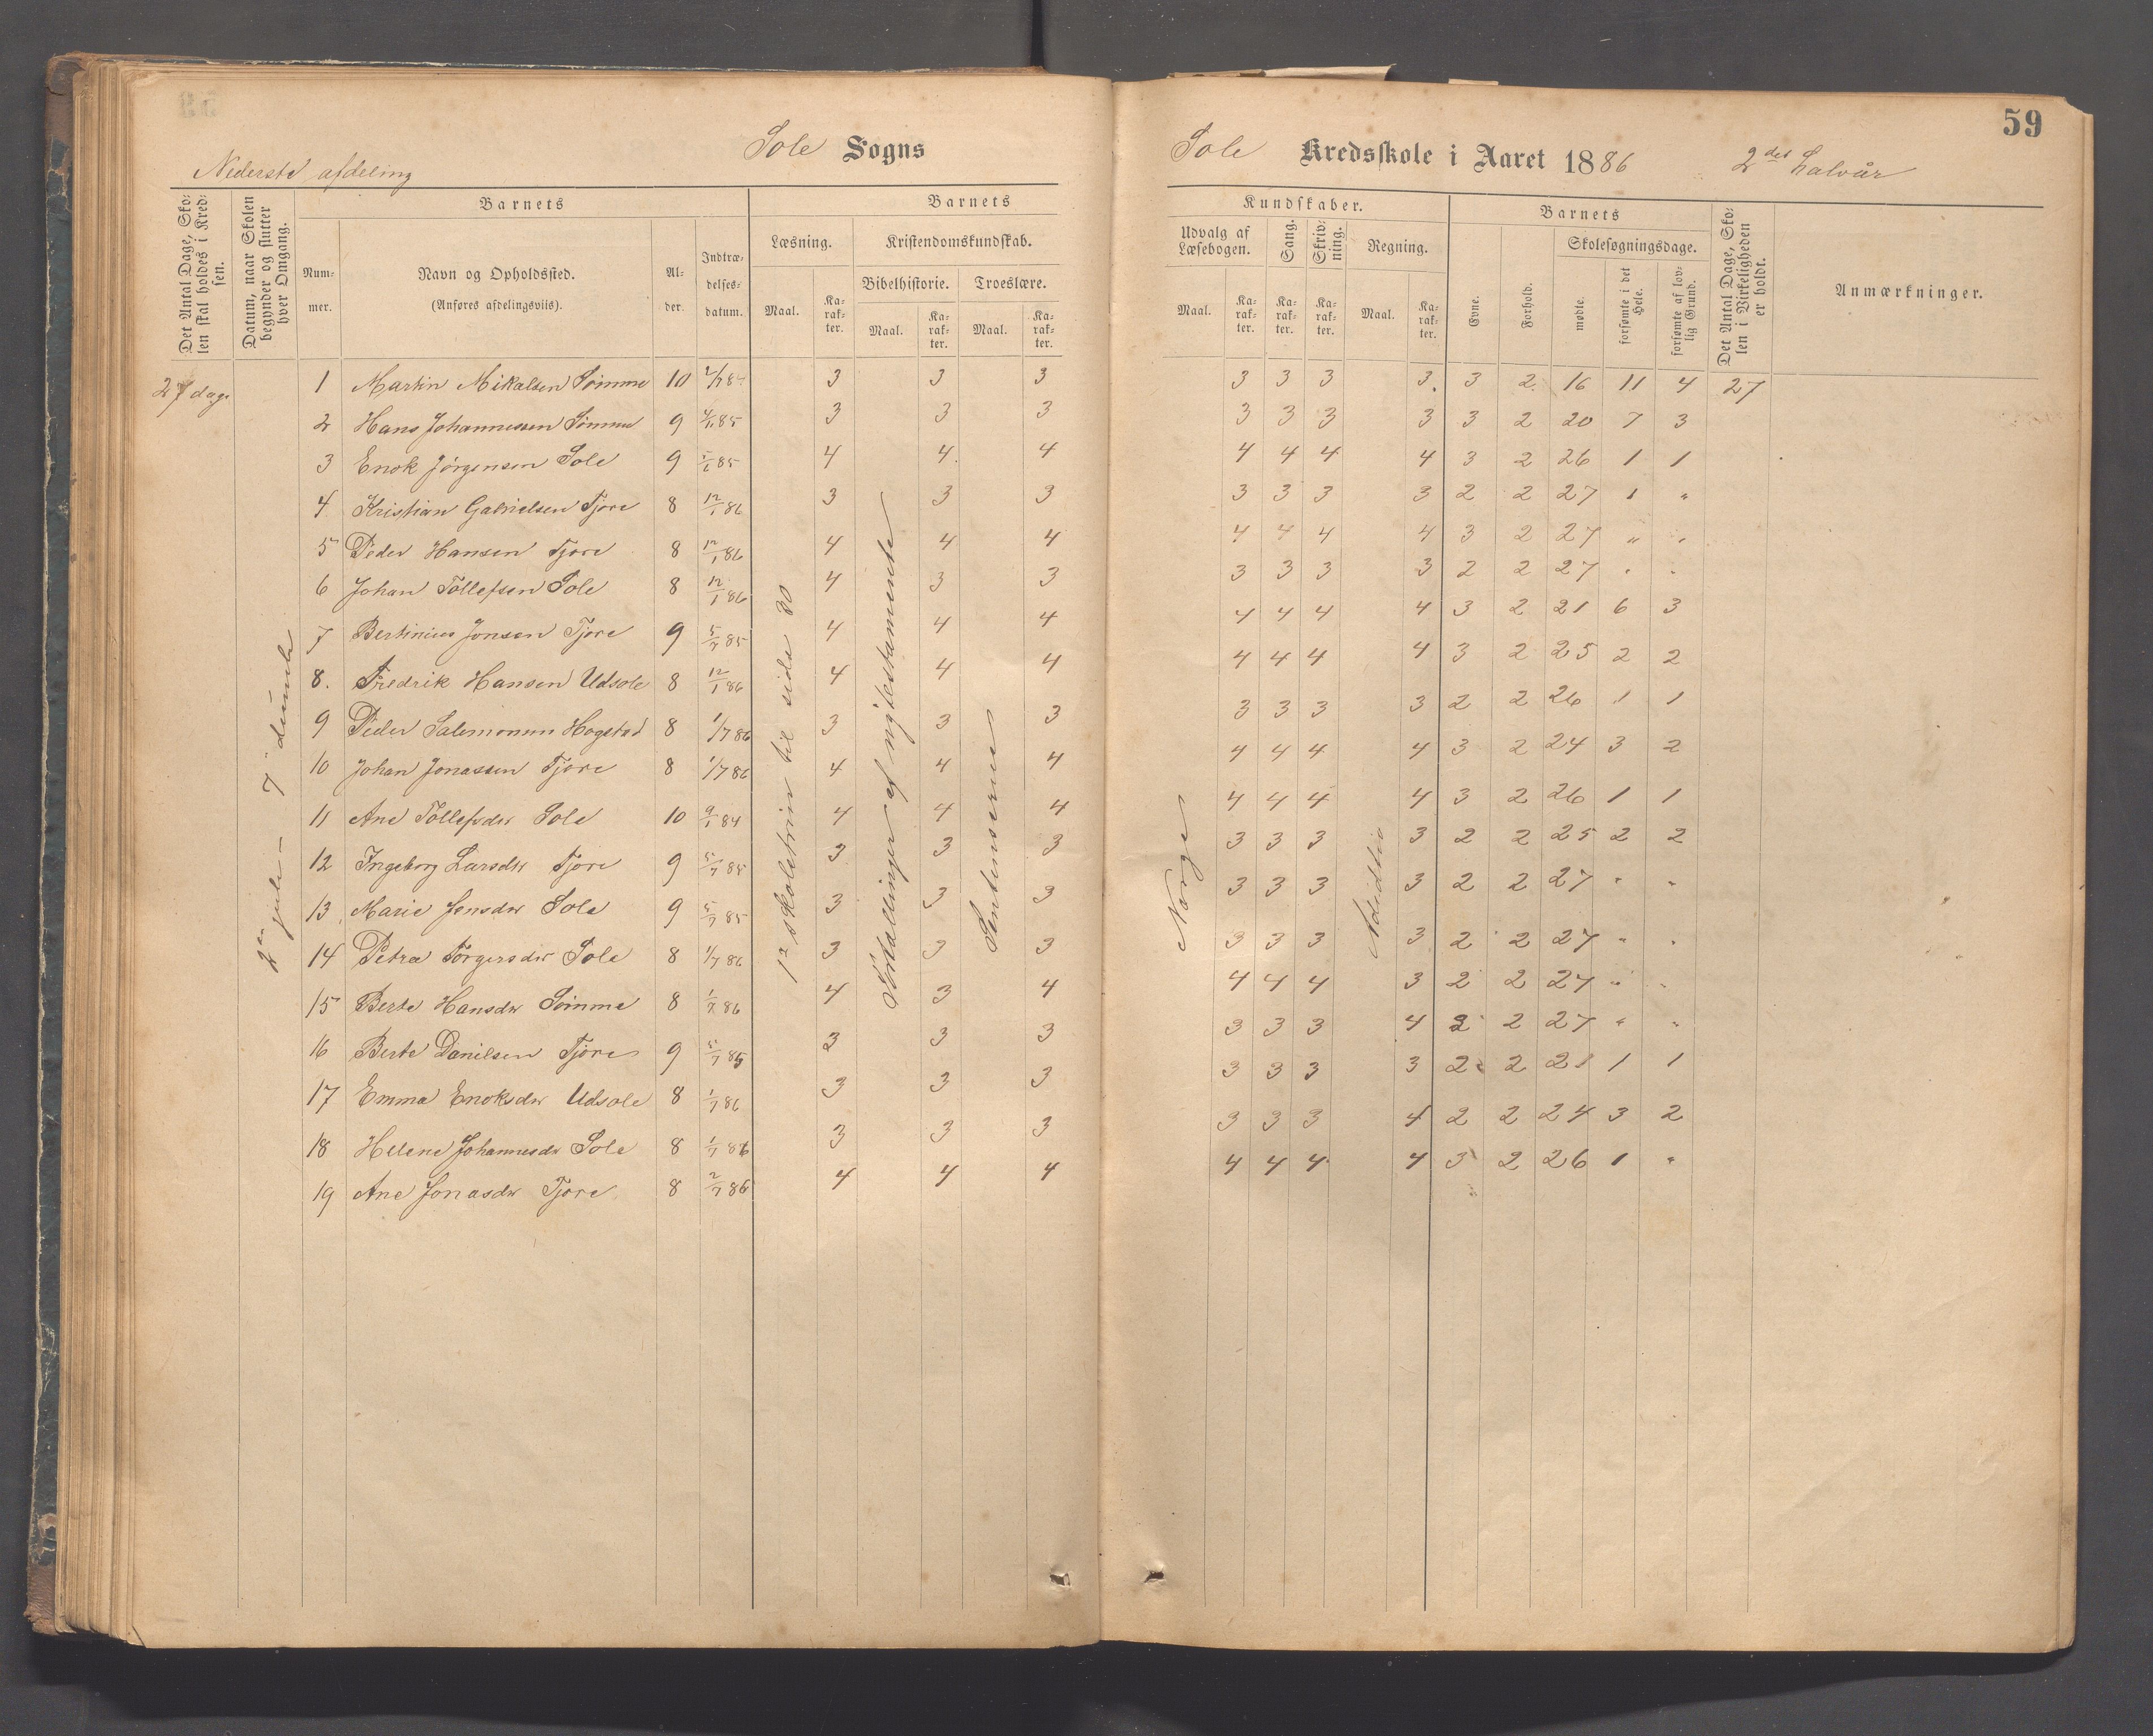 59
Sole Sogns
Nederste afdeling
Sole Kredsskole i Aaret 1886 2det Halvår
Det Antal Dage, Skolen skal holdes i Kredsen.
Datum, naar Skolen begynder og slutter hver Omgang.
Barnets
Nummer.
Navn og Opholdssted.
(Anføres afdelingsviis).
Alder.
Indtrædelsesdatum.
Barnets
Læsning.
Maal.
Karakter.
Kristendomskundskab.
Bibelhistorie.
Maal.
Karakter.
Troeslære.
Maal.
Karakter.
Kundskaber.
Udvalg af Læsebogen.
Maal.
Karakter.
Sang.
Karakter.
Skrivning.
Karakter.
Regning.
Maal.
Karakter.
Barnets
Evne.
Forhold.
Skolesøgningsdage.
mødte.
forsømte i det Hele.
forsømte af lovlig Grund.
Det Antal Dage, Skolen i Virkeligheden er holdt.
Anmærkninger.
27 dage
1 Martin Mikalsen Sømme 10 3 3 3 3 3 3 3. 3 2. 16 11 4 27
2 Hans Johannessen Sømme 9 85 3 3 3 3 3 3 3 3 2 20 7 3
3 Enok Jørgensen Sole 9 85 4 4. 4 4 4 4 4 3 2 26 1 1
4 Kristian Gabrielsen Tjore 8 12/1 86 3 3 3 3 3 3 3 2 2 27 1 "
5 Peder Hansen Tjore 8 12/1 86 4 4 4 4 4 4 4 3 2 27 " "
6 Johan Tollefsen Sole 8 12/1 86 4 3 3 3 3 3 3 2 2 27 " "
7 Bertinius Jonsen Tjore 9 5/7 85 4 4 4 4 4 4 4 3 2 21 6 3
8. Fredrik Hansen Udsole 8 12/1 86 4 4 4 4 4 4 4 3 2 25 2 2
9 Peder Salomonsen Hogstad 8 1/7 86 3 3 3 3 3 3 3 2 2 26 1 1
10 Johan Jonassen Tjore 8 1/7 86 4 4 4 4 4 4 4 3 2 24 3 2
11 Ane Tollefsdr Sole 10 9/1 84 4 4 4 4 4 4 4 3 2 26 1 1
12 Ingeborg Larsdr Tjore 9 5/7 85 3 3 3 3 3 3 3 2 2 25 2 2
13 Marie Jensdr Sole 9 5/7 85 3 3 3 3 3 3 3 2 2 27 " "
14 Petra Torgersdr Sole 8 1/7 86 3 3 3 3 3 3 3 2 2 27 " "
15 Berte Hansdr Sømme 8 1/7 86 4 3 4 4 4 4 3 2 2 27 " "
16 Berte Danilsen Tjore 9 5/7 85 3 3 3 3 3 3 4 2 2 27 " "
17 Emma Enoksdr Udsole 8 1/7 86 3 3 3 3 3 3 3 2 2 1 1
18 Helene Johannesdr Sole 8 1/7 86 3 3 3 3 3 3 4 2 2 24 3 2
19 Ane Jonasdr Tjore 8 2/7 86 4 4 4 4 4 4 4 3 2 26 1 "
1 skoletrin til side 80
Fortællinger af nytestamente
Sentenserne
Norge